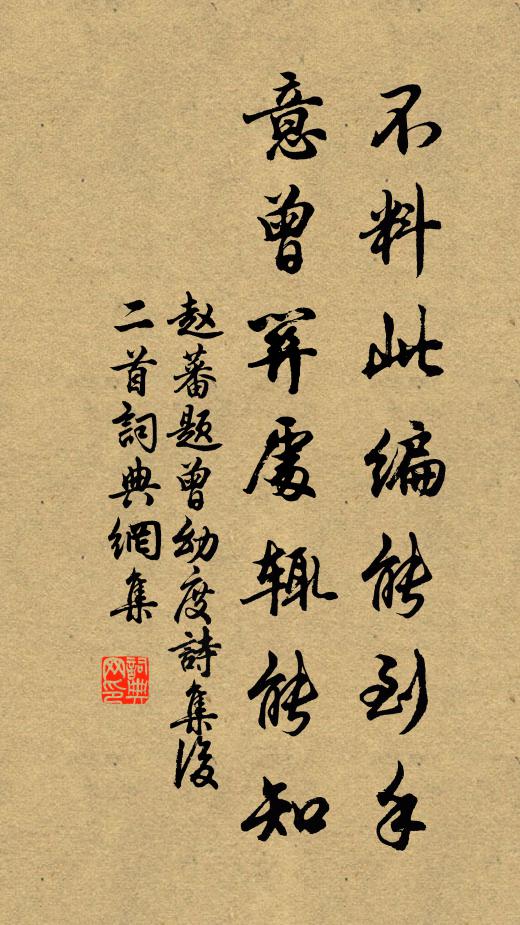 不料此编能到手
意曾羿處辄能知
赵蕃题曾幼度詩集後
二首詞典網集
詞典网印